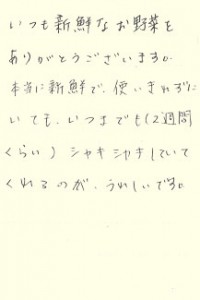 いつも新鮮なお野菜を
ありがとうございます。
本当に新鮮で、使いきれずに
いても、いつまでも(2週間
くらい)シャキシャキしていて
くれるのが、うれしいです。